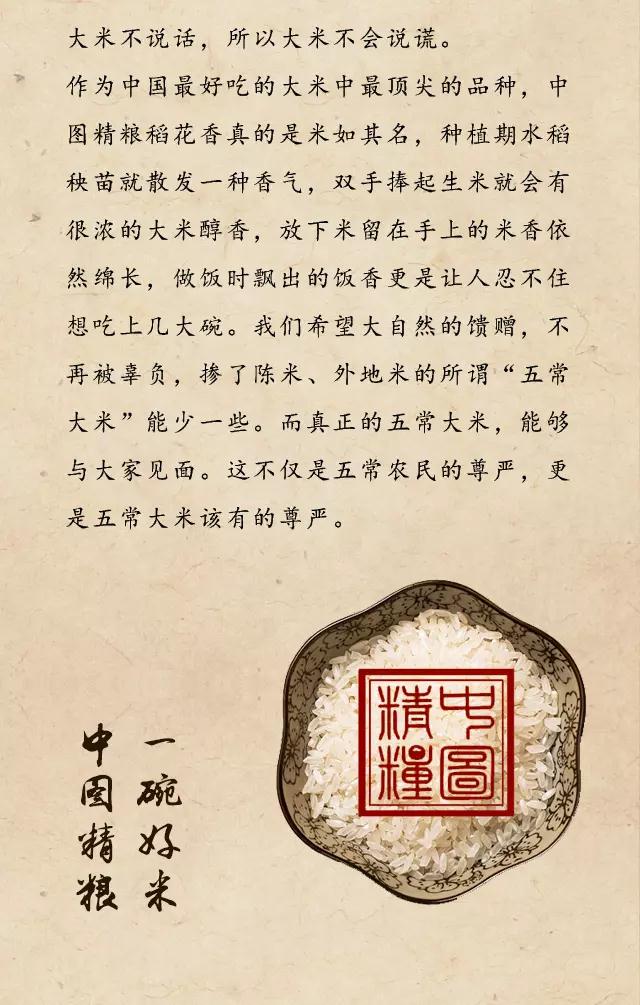 大米不说话，所以大米不会说谎。
作为中国最好吃的大米中最顶尖的品种，中
图精粮稻花香真的是米如其名，种植期水稻
秧苗就散发一种香气，双手捧起生米就会有
很浓的大米醇香，放下米留在手上的米香依
然绵长，做饭时飘出的饭香更是让人忍不住
想吃上几大碗。我们希望大自然的馈赠，不
再被辜负，掺了陈米、外地米的所谓“五常
大米”能少一些。而真正的五常大米，能够
与大家见面。这不仅是五常农民的尊严，更
是五常大米该有的尊严。
中圖
精糧
一碗好米
中图精粮